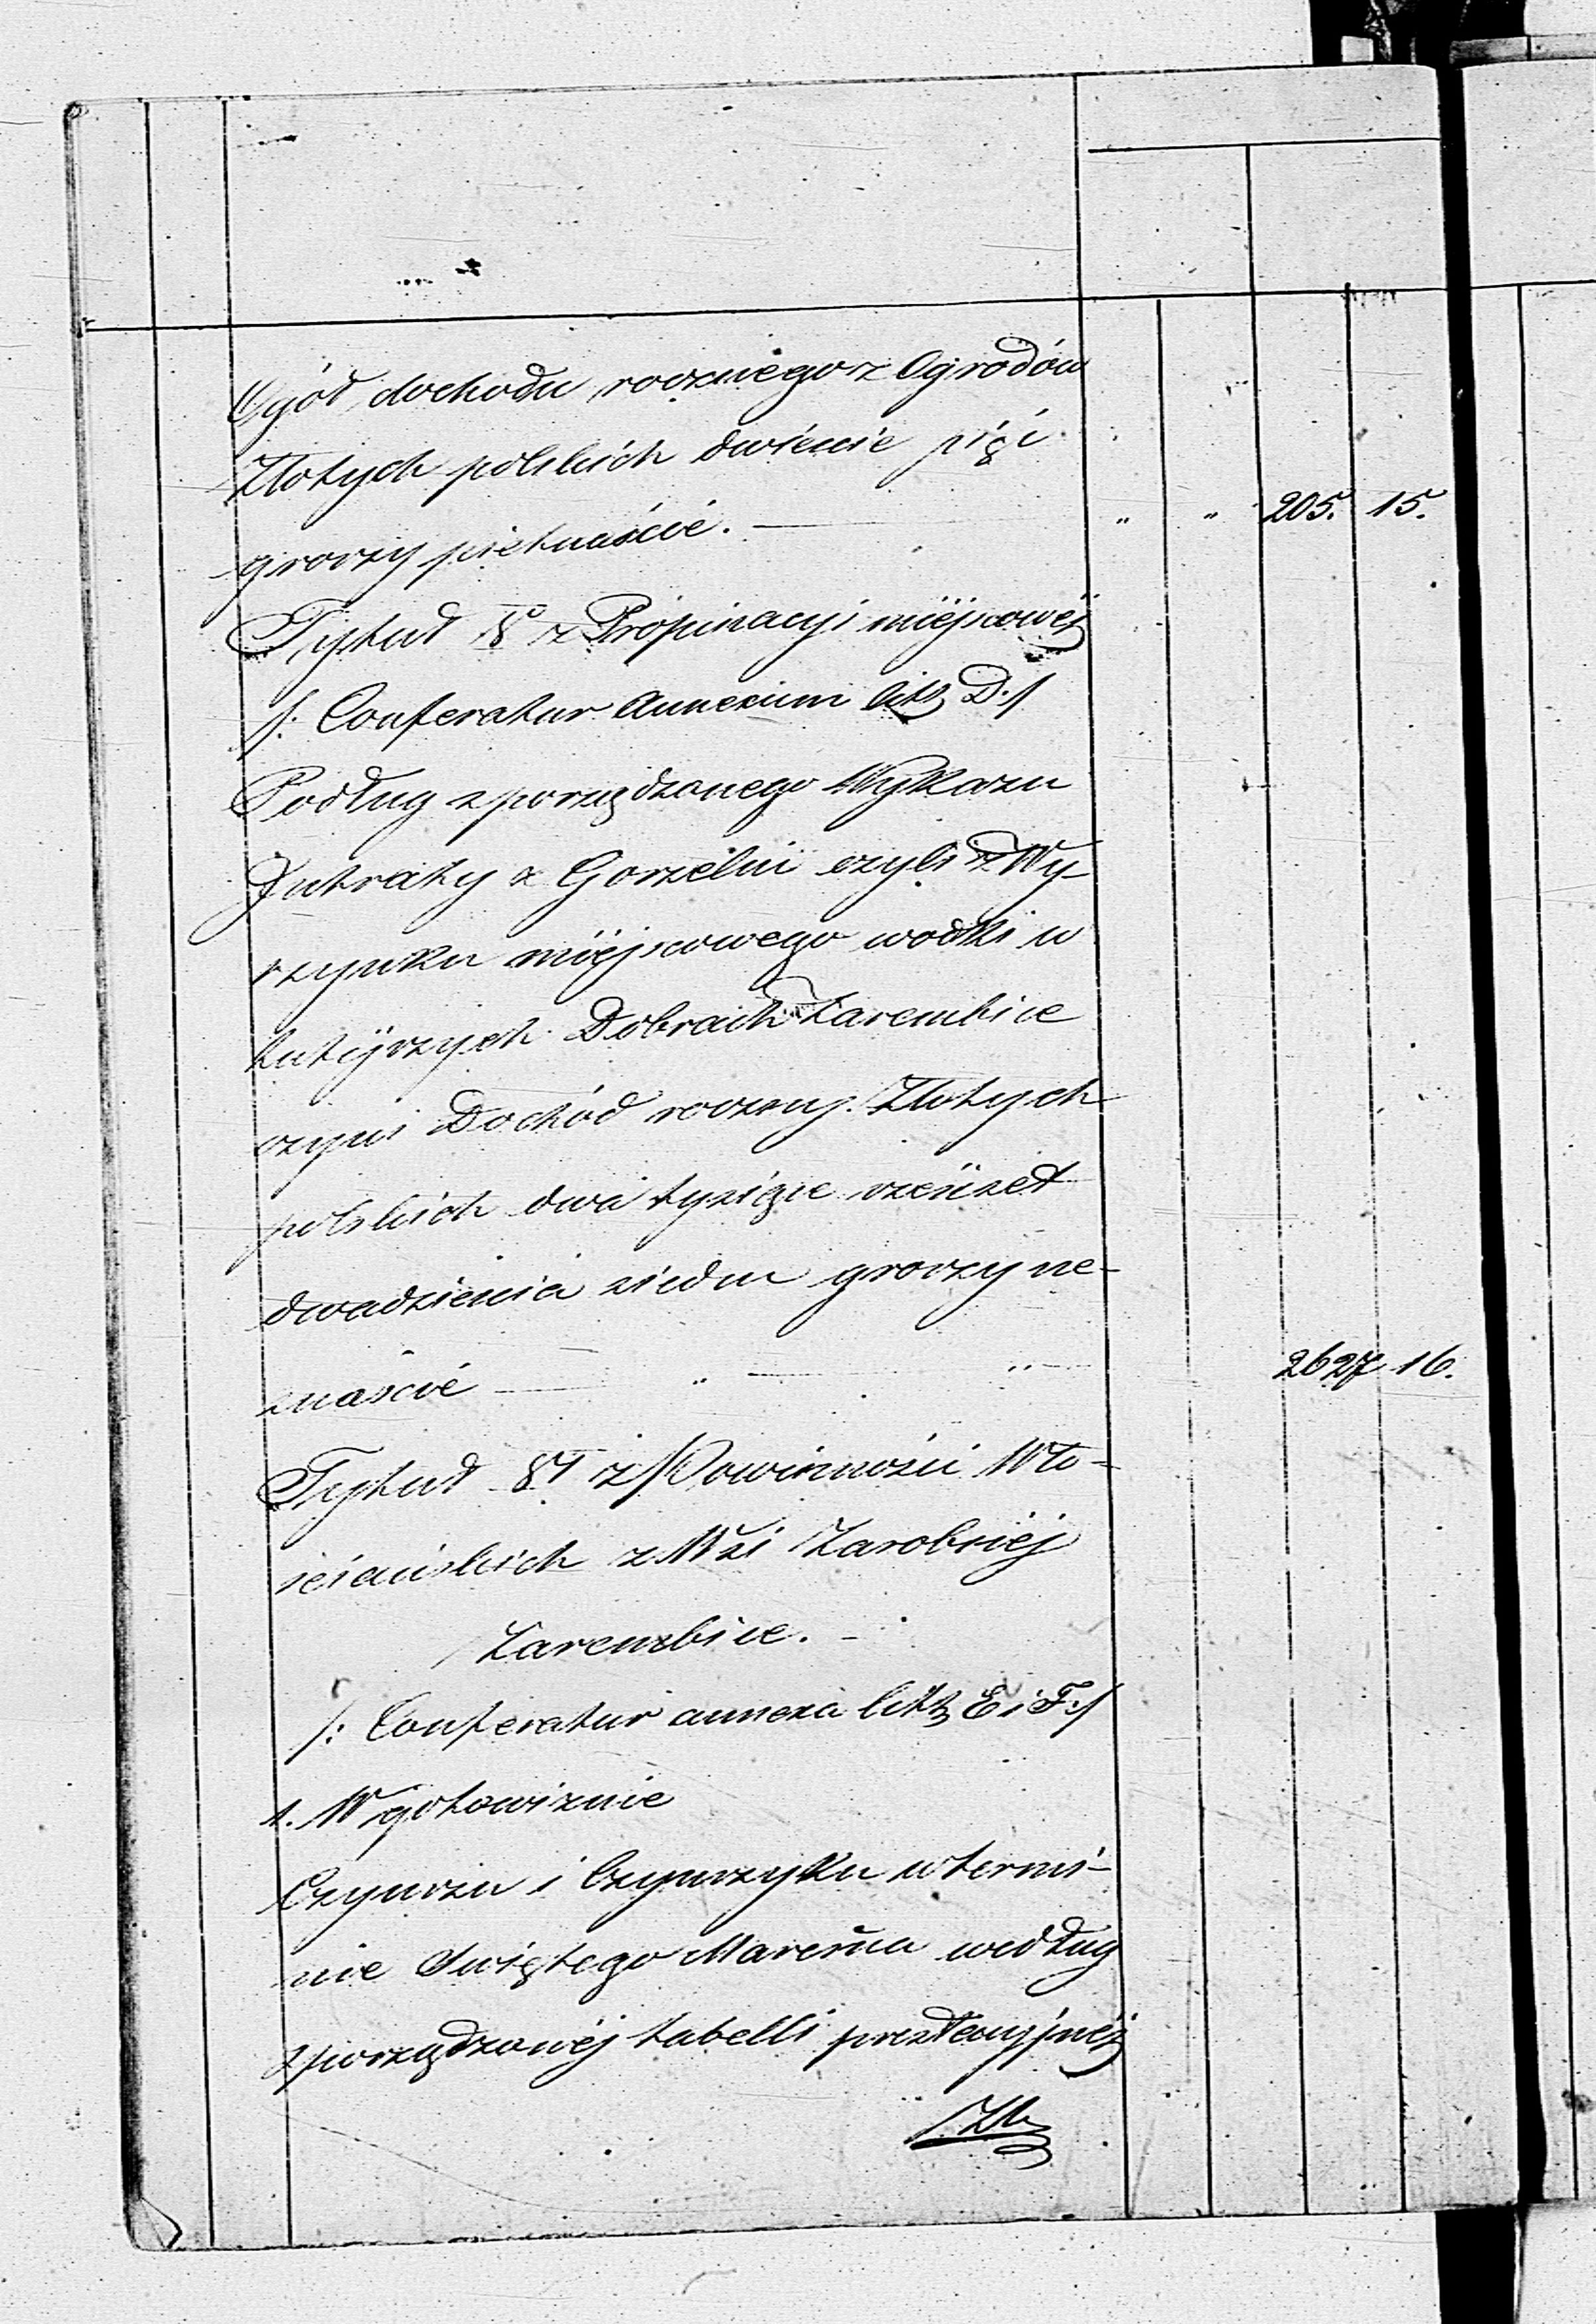 Ogół dochodu rocznego z Ogrodów
Złotych polskich dwieście pięć
groszy piętnaście. — " " 205. 15.
Tytuł z Propinacyi miéjscowéj
/: Conferatur Annexum litt D:/
Podług sporządzonego Wykazu
Intraty z Gorzelni czyli z Wy-
szynku miéjscowego wodki w
tutéjszych Dobrach Zarembice
czyni Dochód roczny. Złotych
polskich dwa tysiące sześćset
dwadzieścia siedm groszy sze-
snaście — " — " — 2627 16.
Tytuł z Powinności Wło-
ściańskich z Wsi Zarobnéj
Zarembice. –
/: Conferatur annexa litt E i F:/
1. W gotowiznie
Czynszu i Czynszyku w termi-
nie Swiętego Marcina według
sporządzonéj tabelli prestacyjnéj
Zł